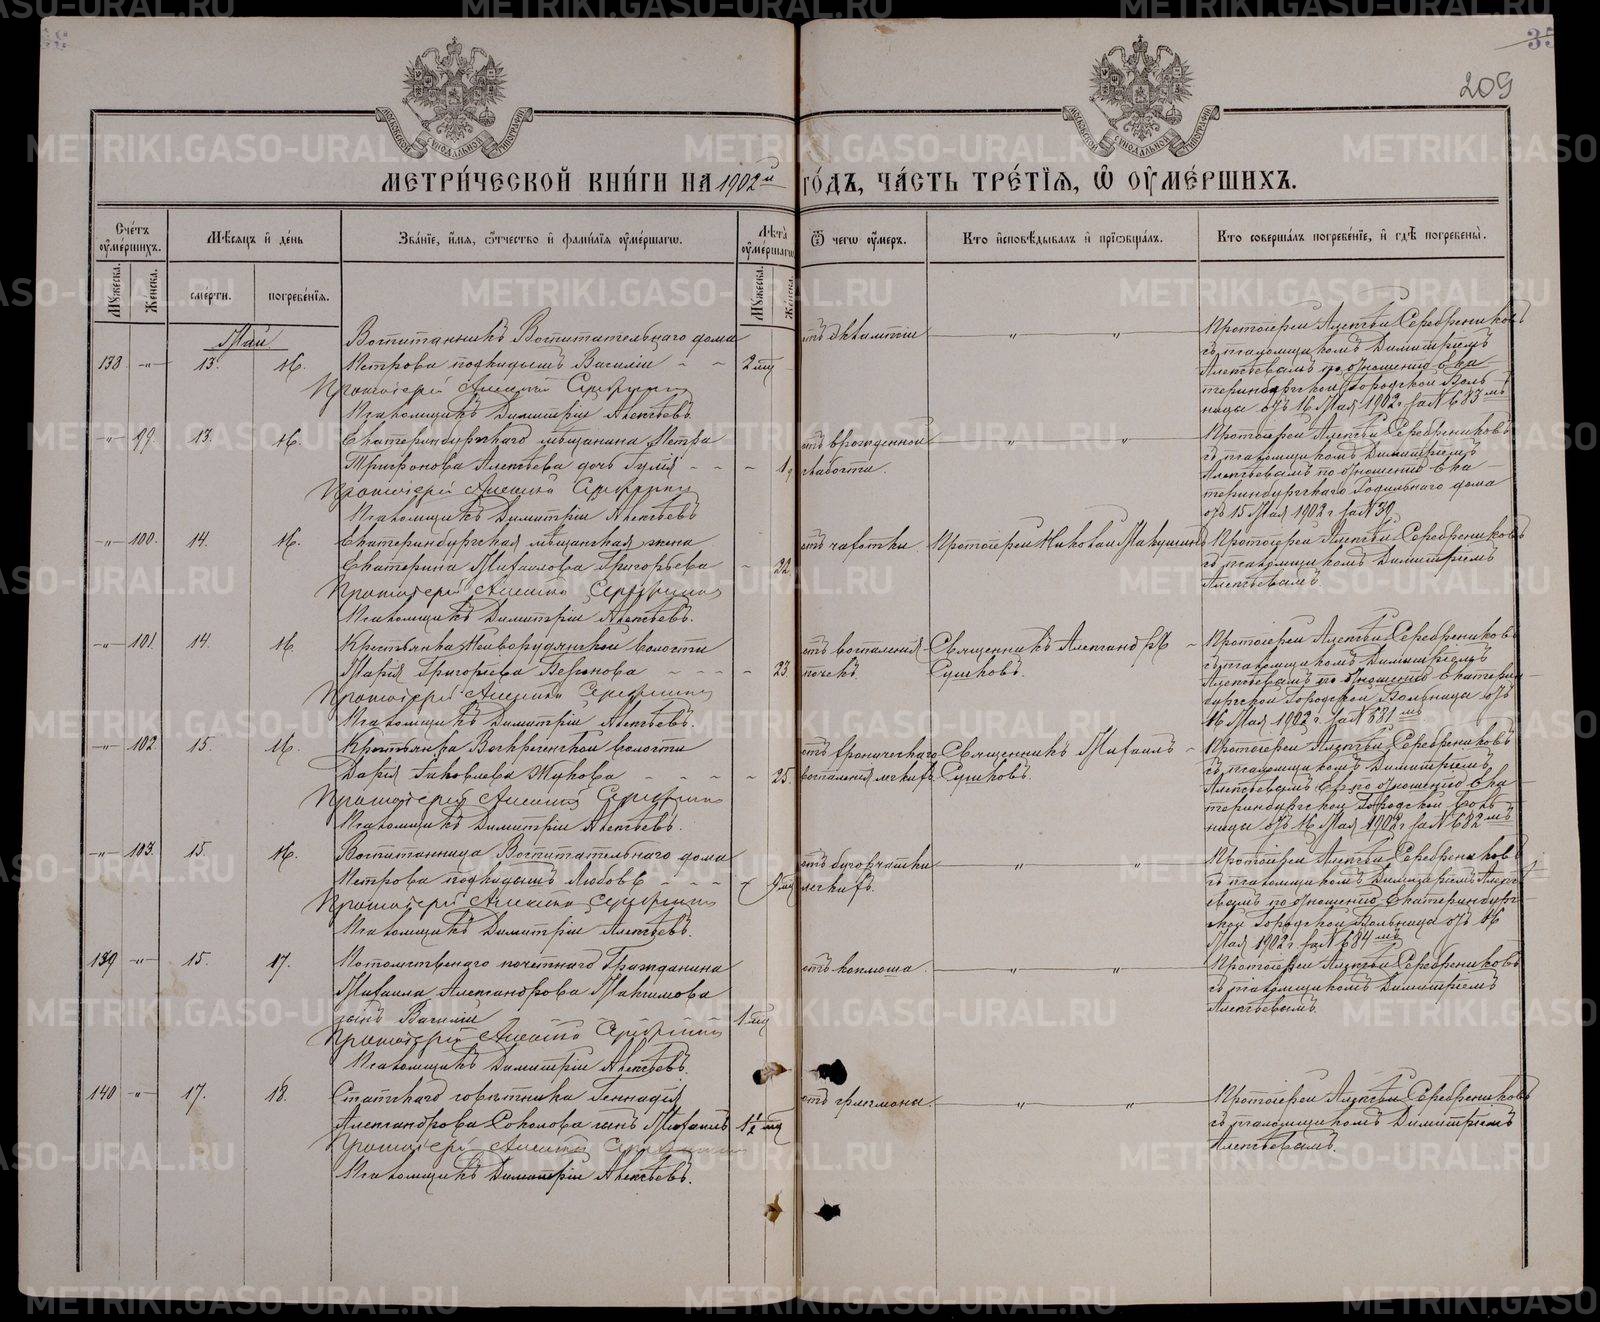 35
209
МОСКОВСКОЙ СѴНОДАЛЬНОЙ ТИПОГРАФІИ
МОСКОВСКОЙ СѴНОДАЛЬНОЙ ТИПОГРАФІИ
МЕТРИ́ЧЕСКОЙ КНИ́ГИ НА 1902й ГО́ДЪ, ЧА́СТЬ ТРЕ́ТІЯ, Ѡ ОУМЕ́РШИХЪ.
Сче́тъ оумершихъ.
Мѣсяцъ и день
Званіе, имя, отчество и фамилія оумершагѡ.
Лѣта оумершагѡ
Ѿ чегѡ оумеръ.
Кто исповѣдывалъ и пріобщалъ.
Кто совершалъ погребеніе, и гдѣ погребены.
Мужеска.
Женска.
смерти.
погребенія.
Мужеска.
Женска.
Май
138 -"- 13. 16.
Воспитанникъ Воспитательнаго дома
Петрова подкидышъ Василій - - 2 мц
Протоіерей Алексѣй
Псаломщикъ Димитрій Алексѣевъ.
- " - "
Протоіерей Алексѣй Серебрениковъ
съ псаломщикомъ Димитріемъ
Алексѣевымъ по отношенію Ека-
теринбургской Городской Боль-
ницы отъ 16 Мая 1902 г за № 683мъ
-"- 99. 13. 16.
Екатеринбургскаго мѣщанина Петра
Трифонова Алексѣева дочь Юлія - - - 1
Протоіерей Алексѣй
Псаломщикъ Димитрій Алексѣевъ
отъ врожденной
слабости.
- " - "
Протоіерей Алексѣй Серебрениковъ
съ псаломщикомъ Димитріемъ
Алексѣевымъ по отношенію Ека-
теринбургскаго Родильнаго дома
отъ 15 Мая 1902 г за № 39
-"- 100. 14. 16.
Екатеринбургская мѣщанская жена
Екатерина Михаилова Григорьева - 22.
Протоіерей Алексѣй
Псаломщикъ Димитрій Алексѣевъ.
отъ чахотки.
Протоіерей Николай
Протоіерей Алексѣй Серебрениковъ
съ псаломщикомъ Димитріемъ
Алексѣевымъ.
-"- 101. 14. 16.
Крестьянка Нейворудянской волости
Марія Григорьева - - - - 23.
Протоіерей Алексѣй
Псаломщикъ Димитрій Алексѣевъ.
отъ воспаленія
почекъ.
Священникъ Александръ -
Сушковъ.
Протоіерей Алексѣй Серебрениковъ
съ псаломщикомъ Димитріемъ
Алексѣевымъ по отношенію Екатерин-
бургской Городской Больницы отъ
16 Мая 1902 г. за № 681мъ
-"- 102. 15. 16.
Крестьянка Воскресенской волости
Дарія Іаковлева Жукова - - - - 25.
Протоіерей Алексѣй
Псаломщикъ Димитрій Алексѣевъ.
отъ хроническаго
воспаленія легкихъ
Священникъ Михаилъ -
Сушковъ.
Протоіерей Алексѣй Серебрениковъ
съ псаломщикомъ Димитріемъ
Алексѣевымъ по отношенію Ека-
теринбургской Городской Боль-
ницы отъ 16 Мая 1902 г за № 682мъ
-"- 103. 15. 16.
Воспитанница Воспитательнаго дома
Петрова подкидышъ Любовь - - -
Протоіерей Алексѣй
Псаломщикъ Димитрій Алексѣевъ.
отъ бугорчатки
легкихъ.
- " - "
Протоіерей Алексѣй Серебрениковъ
съ псаломщикомъ Димитріемъ Алексѣ-
евымъ по отношенію Екатеринбург-
ской Городской Больницы отъ 16
Мая 1902 г за № 684мъ
139 -"- 15. 17.
Потомственнаго почетнаго Гражданина
Михаила Александрова Максимова
сынъ Василій 1 мц
Протоіерей Алексѣй
Псаломщикъ Димитрій Алексѣевъ.
отъ коклюша.
- " - "
Протоіерей Алексѣй Серебрениковъ
съ псаломщикомъ Димитріемъ
Алексѣевымъ.
140 -"- 17. 18.
Статскаго совѣтника Геннадія
Александрова Соколова сынъ Михаилъ 1½ мц
Протоіерей Алексѣй
Псаломщикъ Димитрій Алексѣевъ.
- " - "
Протоіерей Алексѣй Серебрениковъ
съ псаломщикомъ Димитріемъ
Алексѣевымъ.
METRIKI.GASO-URAL.RU